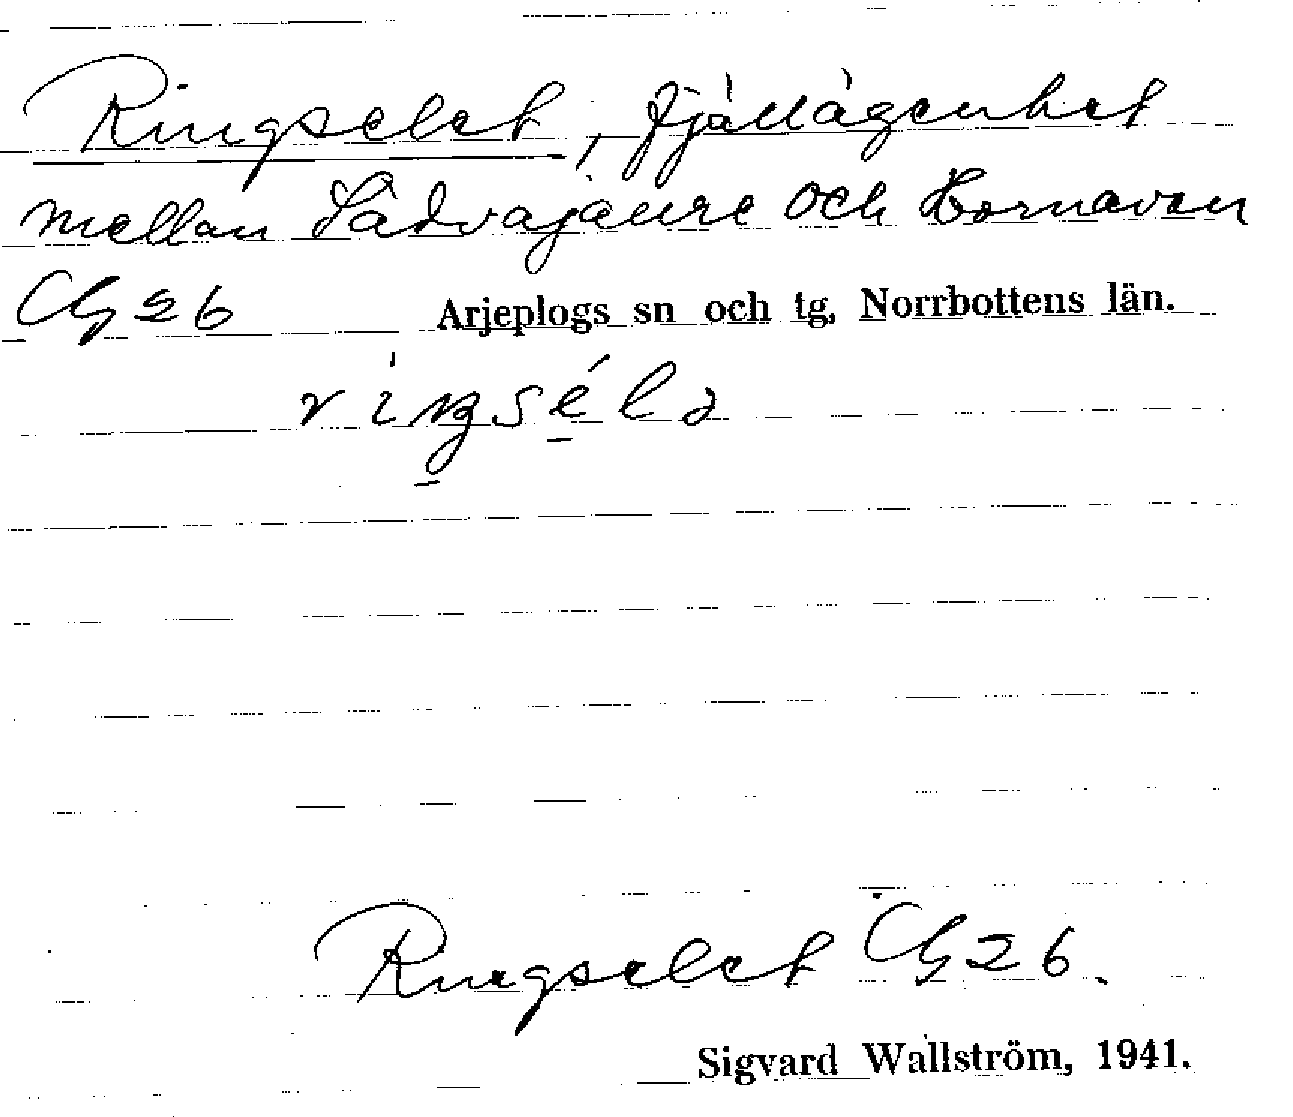 Ringselet, fjällägenhet
mellan Sädvajaure och Hornavan
Cg 26 Arjeplogs sn och tg, Norrbottens län.
Ringselet Cg 26.
Sigvard Wallström, 1941.